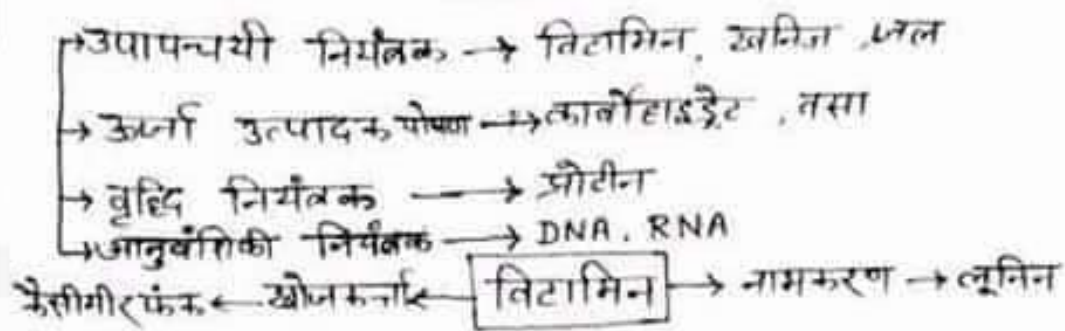 →उपापचयी नियंत्रक → विटामिन, खनिज, जल
→ ऊर्जा उत्पादक पोषण →कार्बोहाइड्रेट, वसा
→ वृद्धि नियंत्रक → प्रोटीन
→आनुवंशिकी नियंत्रक → DNA, RNA
कैसीमीर फंक ← खोजकर्त्ता ← विटामिन → नामकरण → लूनिन